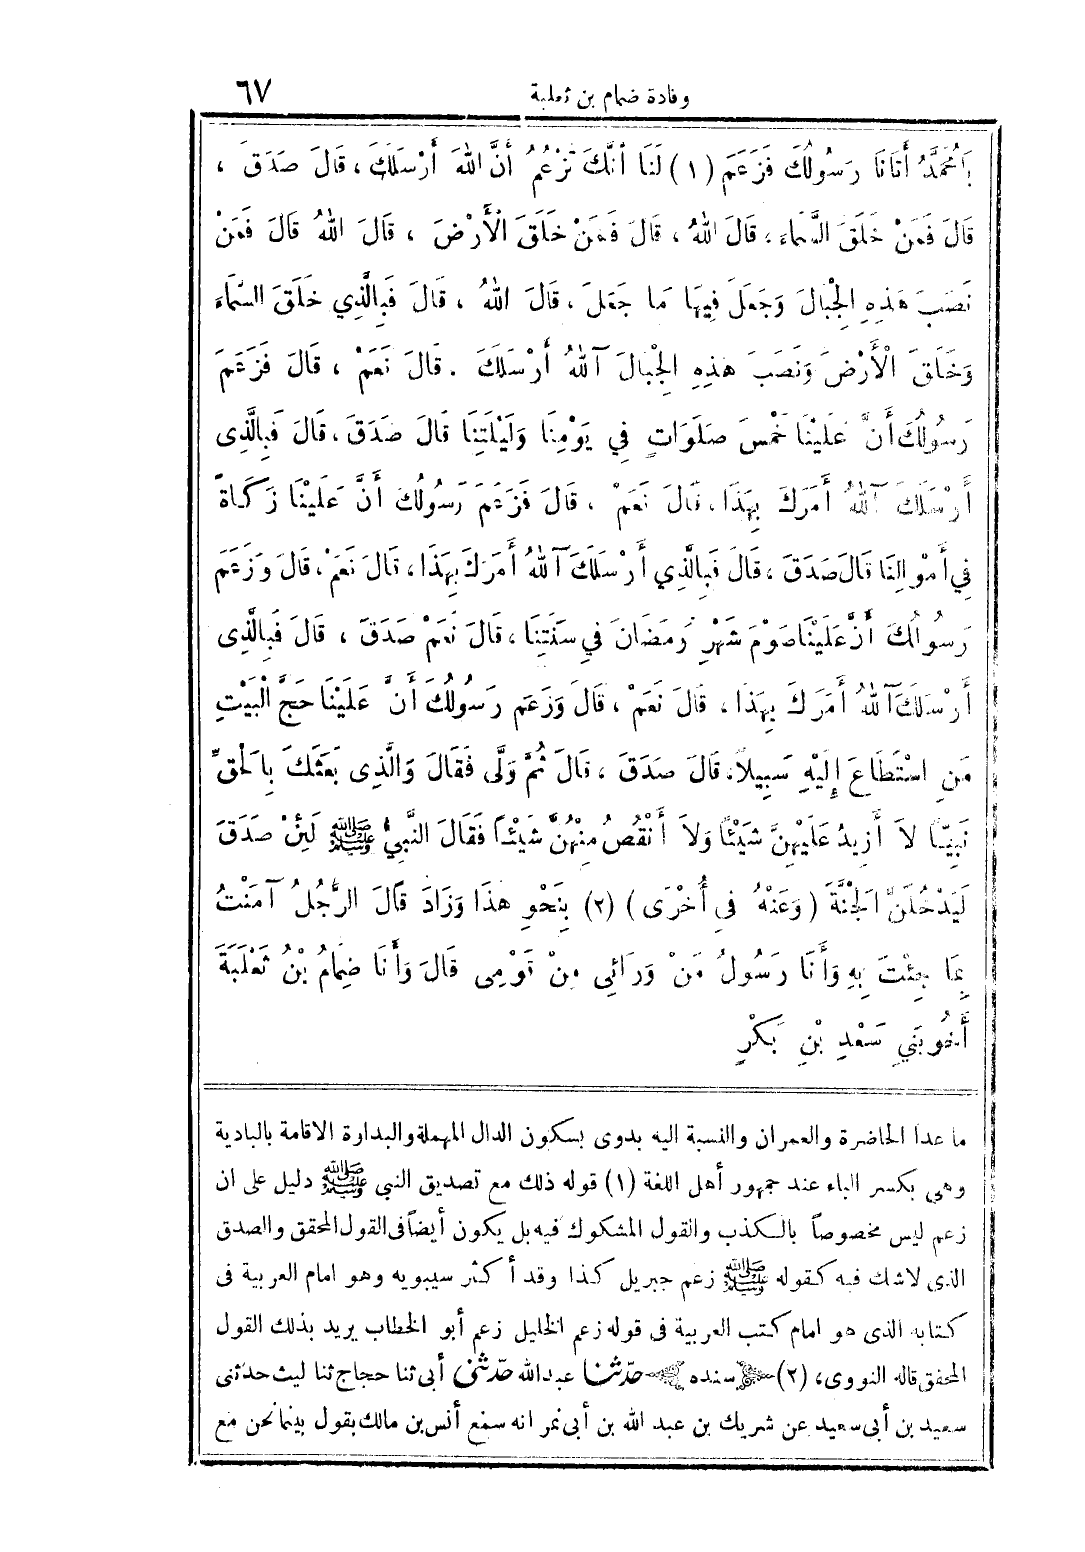 وفادة ضمام بن ثعلبة ٦٧
يَا مُحَمَّدُ أَتَانَا رَسُولُكَ فَزَعَمَ (١) لَنَا أَنَّكَ تَزْعُمُ أَنَّ اللهَ أَرْسَلَكَ، قَالَ صَدَقَ ،
قَالَ فَمَنْ خَلَقَ السَّمَاءَ، قَالَ اللهُ ، قَالَ فَمَنْ خَلَقَ الْأَرْضَ ، قَالَ اللهُ قَالَ فَمَنْ
نَصَبَ هَذِهِ الْجِبَالَ وَجَعَلَ فِيهَا مَا جَعَلَ ، قَالَ اللهُ ، قَالَ فَبِالَّذِي خَلَقَ السَّمَاءَ
وَخَلَقَ الْأَرْضَ وَنَصَبَ هَذِهِ الْجِبَالَ آللهُ أَرْسَلَكَ . قَالَ نَعَمْ ، قَالَ فَزَعَمَ
رَسُولُكَ أَنَّ عَلَيْنَا خَمْسَ صَلَوَاتٍ فِي يَوْمِنَا وَلَيْلَتِنَا قَالَ صَدَقَ ، قَالَ فَبِالَّذِى
أَرْسَلَكَ آللهُ أَمَرَكَ بِهَذَا ، قَالَ نَعَمْ ، قَالَ فَزَعَمَ رَسُولُكَ أَنَّ عَلَيْنَا زَكَاةً
فِي أَمْوَالِنَا قَالَ صَدَقَ ، قَالَ فَبِالَّذِي أَرْسَلَكَ آللهُ أَمَرَكَ بِهَذَا، قَالَ نَعَمْ ، قَالَ وَزَعَمَ
رَسُولُكَ أَنَّ عَلَيْنَا صَوْمَ شَهْرِ رَمَضَانَ فِي سَنَتِنَا ، قَالَ نَعَمْ صَدَقَ ، قَالَ فَبِالَّذِى
أَرْسَلَكَ آللهُ أَمَرَكَ بِهَذَا ، قَالَ نَعَمْ ، قَالَ وَزَعَمَ رَسُولُكَ أَنَّ عَلَيْنَا حَجَّ الْبَيْتِ
مَنِ اسْتَطَاعَ إِلَيْهِ سَبِيلاً ، قَالَ صَدَقَ ، قَالَ ثُمَّ وَلَّى فَقَالَ وَالَّذِى بَعَثَكَ بِالْحَقِّ
نَبِيًّا لاَ أَزِيدُ عَلَيْهِنَّ شَيْئًا وَلاَ أَنْقُصُ مِنْهُنَّ شَيْئًا فَقَالَ النَّبِيُّ ﷺ لَئِنْ صَدَقَ
لَيَدْخُلَنَّ الْجَنَّةَ (وَعَنْهُ فِي أُخْرَى) (٢) بِنَحْوِ هَذَا وَزَادَ قَالَ الرَّجُلُ آمَنْتُ
بِمَا جِئْتَ بِهِ وَأَنَا رَسُولُ مَنْ وَرَائِى مِنْ قَوْمِى قَالَ وَأَنَا ضِمَامُ بْنُ ثَعْلَبَةَ
أَخُو بَنِي سَعْدِ بْنِ بَكْرٍ
ما عدا الحاضرة والعمران والنسبة اليه بدوى بسكون الدال المهملة والبداوة الاقامة بالبادية
وهى بكسر الباء عند جمهور أهل اللغة (١) قوله ذلك مع تصديق النبي ﷺ دليل على ان
زعم ليس مخصوصاً بالكذب والقول المشكوك فيه بل يكون أيضاً فى القول المحقق والصدق
الذى لاشك فيه كقوله ﷺ زعم جبريل كذا وقد أكثر سيبويه وهو امام العربية فى
كتابه الذى هو امام كتب العربية فى قوله زعم الخليل زعم أبو الخطاب يريد بذلك القول
المحقق قاله النووى، (٢) سنده حدّثنا عبدالله حدّثنى أبى ثنا حجاج ثنا ليث حدثنى
سعيد بن أبى سعيد عن شريك بن عبد الله بن أبى نمر انه سمع أنس بن مالك يقول بينما نحن مع